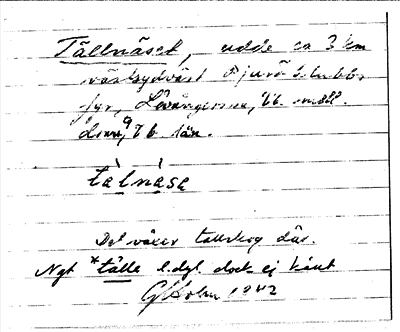 Tällnäset, udde ca 3 km
västsydväst Bjurö klubbs
fyr, Lövångers sn,
län.
tàlnàsa
Det växer tallskog där.
Ngt *tälle l. dyl. dock ej känt
GHolm 1942